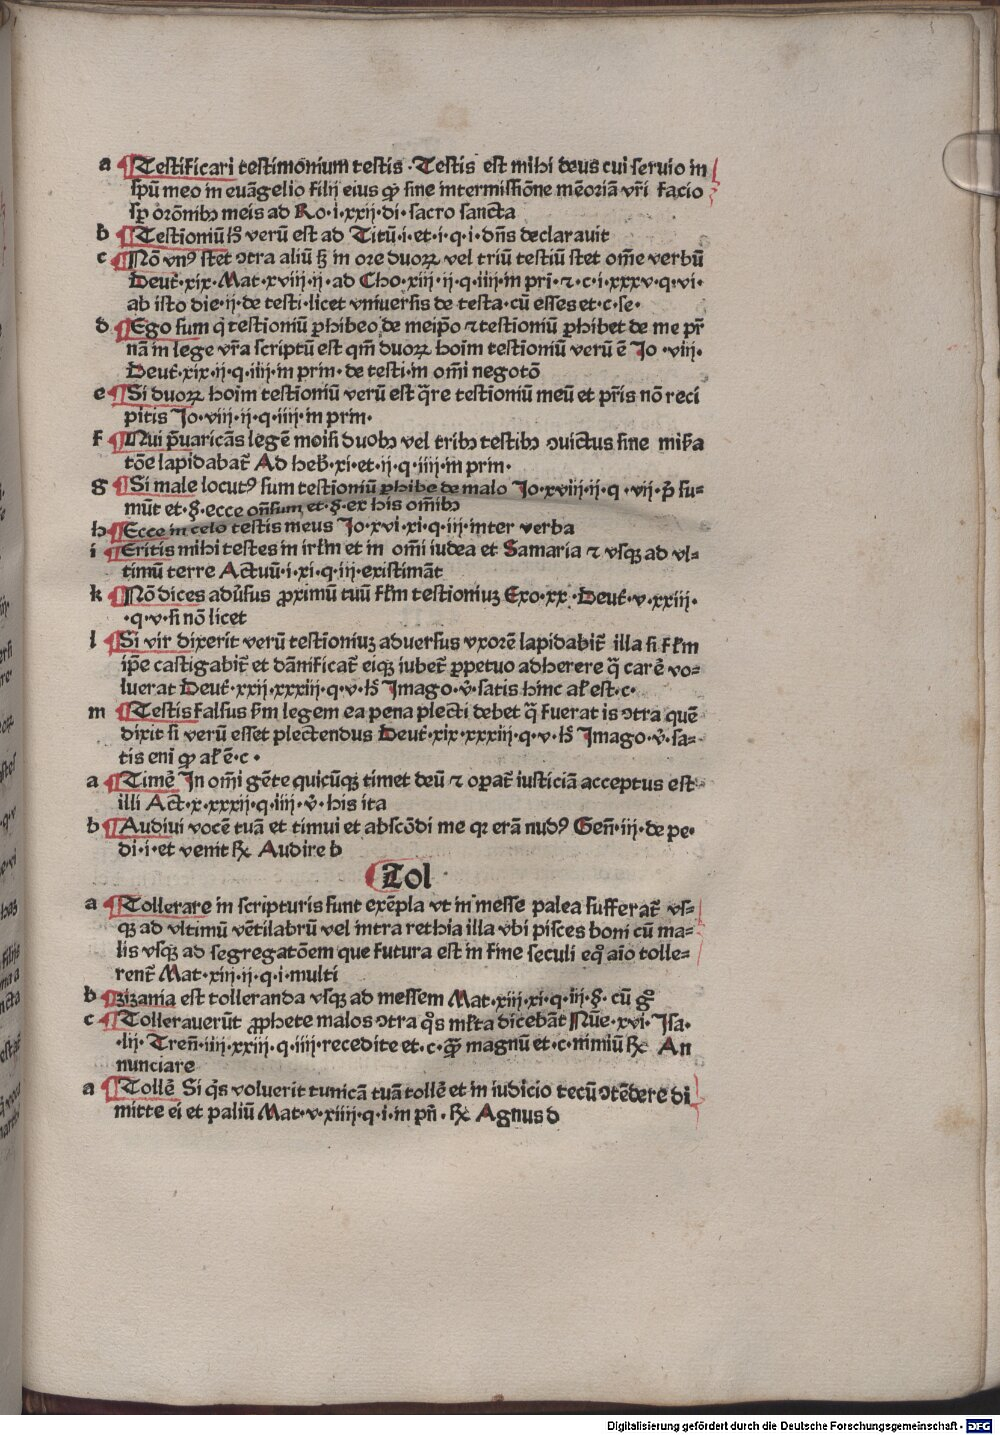 a ¶Testificari testimonium testis · Testis est mihi deus cui seruio in
sp̄u meo in euāgelio filij eius qꝫ sine intermissiōne mēoriā vr̄i facio
sp̄ orōnibꝫ meis ad Ro·i·xxij·di·sacro sancta
b ¶Testioniū hͦ verū est ad Titū·i·et·i·q·i·dn̄s declarauit
c ¶Nō vnꝰ stet ↄtra aliū sꝫ in ore duoꝝ vel triū testiū stet om̄e verbū
Deut̄·xix·Mat·xviij·ij·ad Cho·xiij·ij·q·iiij·in pri·⁊·c·i·xxxv·q·vi·
ab isto die·ij·de testi·licet vniuersis de testa·cū esses et·c·se·
d ¶Ego sum q̇ testioniū ꝑhibeo de meip̄o ⁊ testioniū ꝑhibet de me pr̄
nā in lege vr̄a scriptū est qm̄ duoꝝ hoim testioniū verū ē Jo ·viij·
Deut̄·xix·ij·q·iiij·in prin·de testi·in om̄i negotō
e ¶Si duoꝝ hoim testioniū verū est q̄re testioniū meū et pr̄is nō reci
pitis Jo·viij·ij·q·iiij·in prin·
f ¶Nui p̄uaricās legē moisi duobꝫ vel tribꝫ testibꝫ ↄuictus sine mis̄a
tōe lapidabat̄ Ad heb̄·xi·et·ij·q·iiij·in prin·
g ¶Si male locutꝰ sum testioniū ꝑhibe de malo Jo·xviij·ij·q·vij·p̄ su=
mūt et·§·ecce on̄sum et·§·ex his om̄ibꝫ
h ¶Ecce in celo testis meus Jo·xvi·xi·q·iij·inter verba
i ¶Eritis mihi testes in irłm et in om̄i iudea et Samaria ⁊ vsqꝫ ad vl=
timū terre Actuū·i·xi·q·iij·existimāt
k ¶Nō dices adūsus ꝓximū tuū fłm testioniuꝫ Exo·xx·Deut̄·v·xxiij·
·q·v·si nō licet
l ¶Si vir dixerit verū testioniuꝫ aduersus vxorē lapidabit̄ illa si fłm
ip̄e castigabit̄ et dānificat̄ eiqꝫ iubet̄ ꝑpetuo adherere q̄ carē vo=
luerat Deut̄·xxij·xxxiij·q·v·hͦ Jmago·v̄·satis hinc ał est·c·
m ¶Testis falsus sm̄ legem ea pena plecti debet q̄ fuerat is ↄtra quē
dixit si verū esset plectendus Deut̄·xix·xxxiij·q·v·hͦ Jmago·v̄·sa=
tis eni qꝫ ał ē·c·
a ¶Timē Jn om̄i gēte quicūqꝫ timet deū ⁊ oꝑat̄ iusticiā acceptus est
illi Act·x·xxxij·q·iiij·v̄·his ita
b ¶Audiui vocē tuā et timui et abscōdi me qꝛ erā nudꝰ Gen̄·iij·de pe·
di·i·et venit ℞ Audire b
¶Tol
a ¶Tollerare in scripturis sunt exēpla vt in messe palea sufferat̄ vs=
qꝫ ad vltimū vētilabrū vel intra rethia illa vbi pisces boni cū ma=
lis vsqꝫ ad segregatōem que futura est in fine seculi eqͦ aīo tolle=
rent̄ Mat·xiij·ij·q·i·multi
b ¶zizania est tolleranda vsqꝫ ad messem Mat·xiij·xi·q·iij·§·cū gͦ
c ¶Tollerauerūt ꝓphete malos ↄtra qͦs młta dicebāt Nūe·xvi·Jsa·
·lij·Tren̄·iiij·xxiij·q·iiij·recedite et·c·qꝫ magnū et·c·nimiū ℞ An
nunciare
a ¶Tollē Si q̇s voluerit tunicā tuā tollē et in iudicio tecū ↄtēdere di
mitte ei et paliū Mat·v·xiiij·q·i·in pn̄·℞ Agnus d
Digitalisierung gefördert durch die Deutsche Forschungsgemeinschaft - DFG